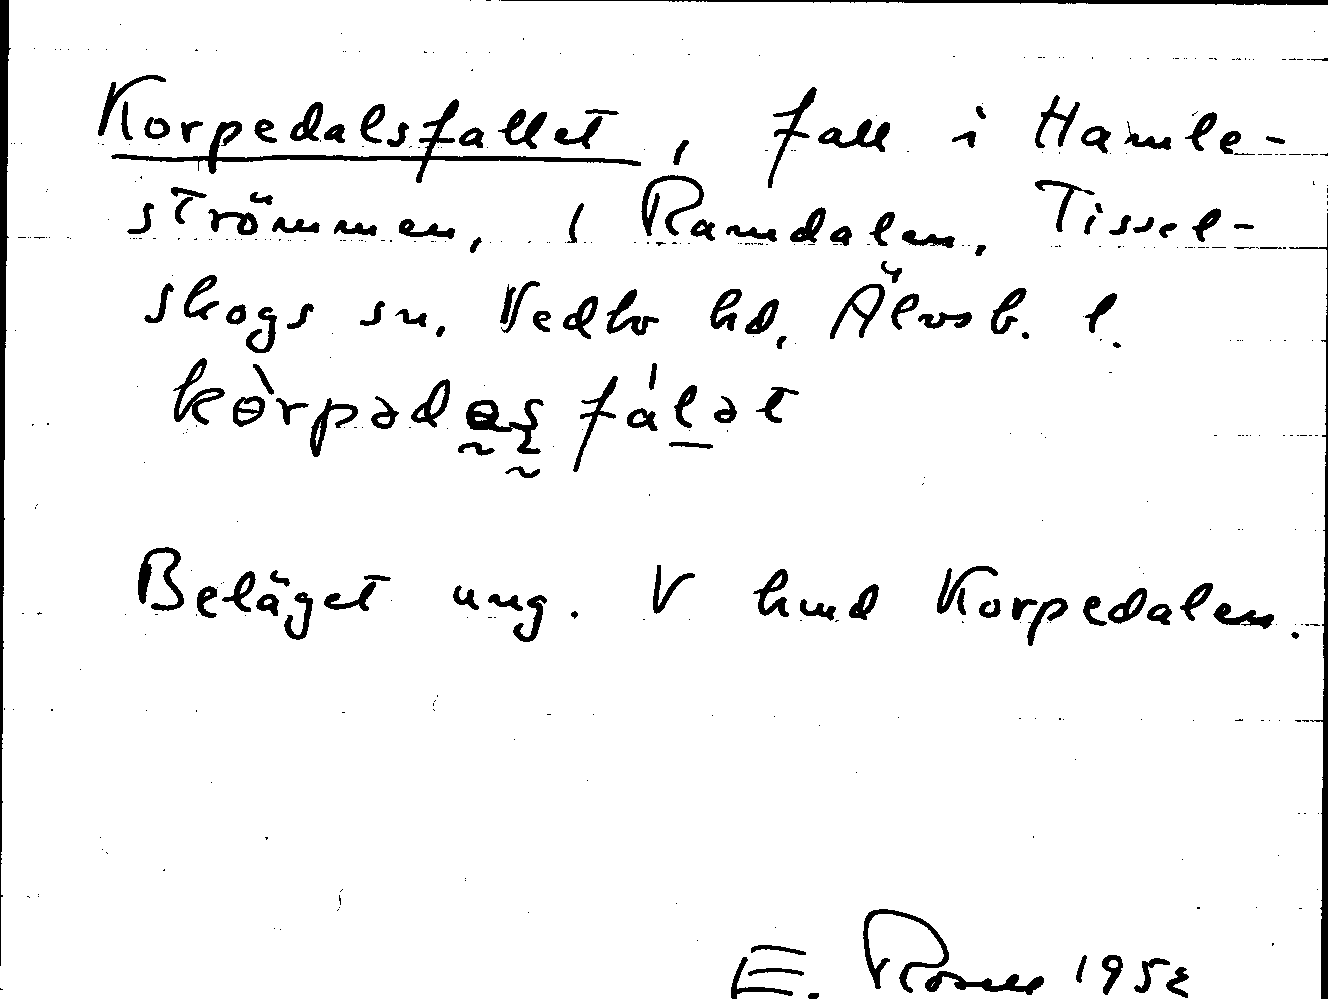 Korpedalsfallet, fall i Hamle-
strömmen, i Ramdalen, Tissel-
skogs sn, Vedbo hd, Älvsb. l.
Beläget ung. V hmd Korpedalen.
E. Rosell 1952